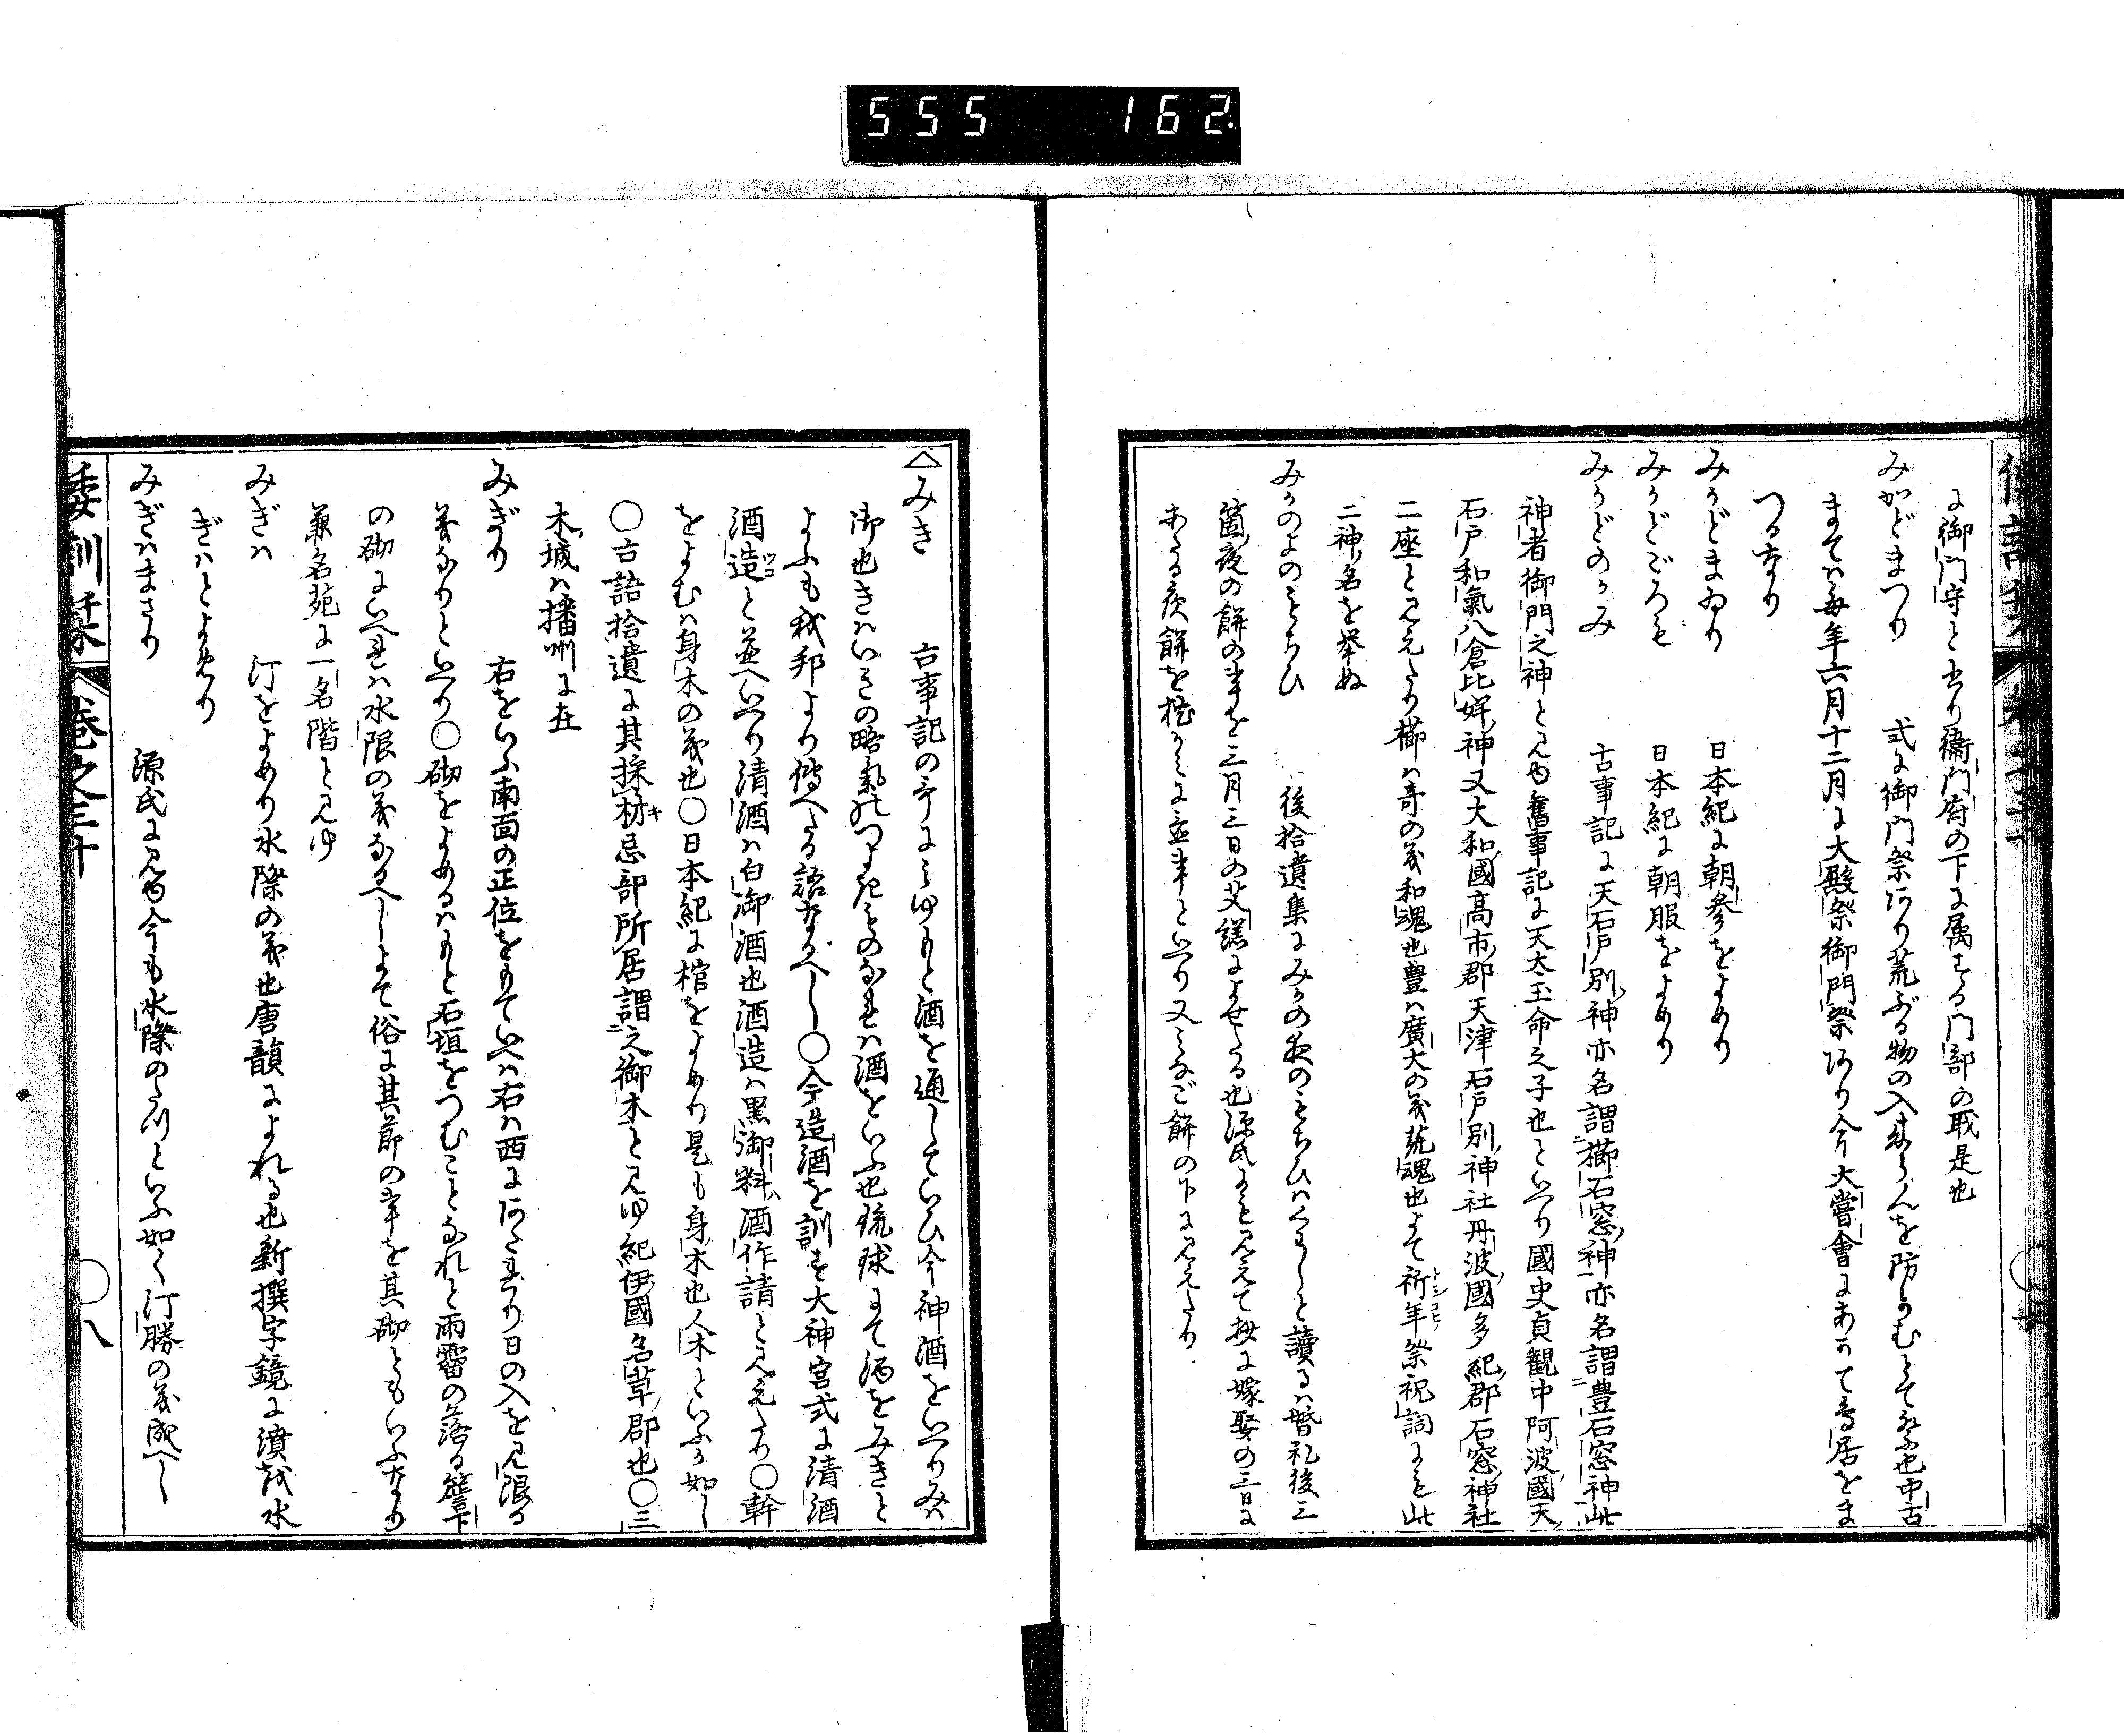 555 162
に御門守と書り衛門府の下に属する門部の職是也
みかどまつり 式に御門祭あり荒ぶる物の入来らんを防しむとて祭る也中古
まては毎年六月十二月に大殿祭御門祭あり今大嘗會にあかて鳥居をま
つるなり
みかどまゐり 日本紀に朝参をよめり
みかどごろも 日本紀に朝服をよめり
みかどのかみ 古事記に天石戸別神亦名謂櫛石窓神亦名謂豊石窓神此
神者御門之神と見ゆ舊事記に天太玉命之子也といへり國史貞観中阿波國天
石戸和氣八倉比咩神又大和國高市郡天津石戸別神社丹波國多紀郡石窓神社
二座と見えたり櫛は奇の義和魂也豊は廣大の義荒魂也よて祈年祭祝詞にも此
二神名を挙ぬ
みかのよのもちひ 後拾遺集にみかの夜のもちひはくはしと讀るは婚礼後三
箇夜の餅の事を三月三日の艾餻によせたる也源氏にも見えて抄に嫁娶の三日に
あたる夜餅を
△みき 古事記の哥にみゆもと酒を通していひ今神酒をいへりみは
御也きはいきの略 酒をいふ也琉球にて酒をみきと
よふも我邦より傳へたる語なるへし○今造酒を訓す大神宮式に清酒
酒造と並へいへり清酒は白御酒也酒造は黒御料酒作請と見えたり○幹
をよむは身木の義也○日本紀に棺をよめり是も身木也人木といふか如し
○古語拾遺に其採材忌部所居謂之御木と見ゆ紀伊國名草郡也○三
木城は播州に在
みぎり 右をいふ南面の正位をもていへは右は西にあたれり日の入を見限る
義なりといへり○砌をよめるはもと石垣をつむことなれと雨霤の落る簷下
の砌にいへるは水限の義なるへしよて俗に其節の事を其砌ともいふなり
兼名苑に一名階と見ゆ
みぎは 汀をよめり水際の義也唐韻によれる也新撰字鏡に濆を水
ぎはとよめり
みぎはまさり 源氏に見ゆ今も水際のたつといふ如く汀勝の義成へし
倭訓栞 巻之三十 ○八